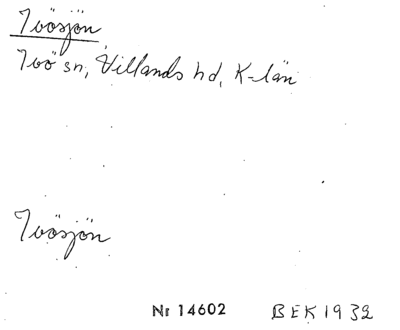 Ivösjön
Ivö sn, Villands hd, K-län
Ivösjön
Nr 14602 BEK 1932